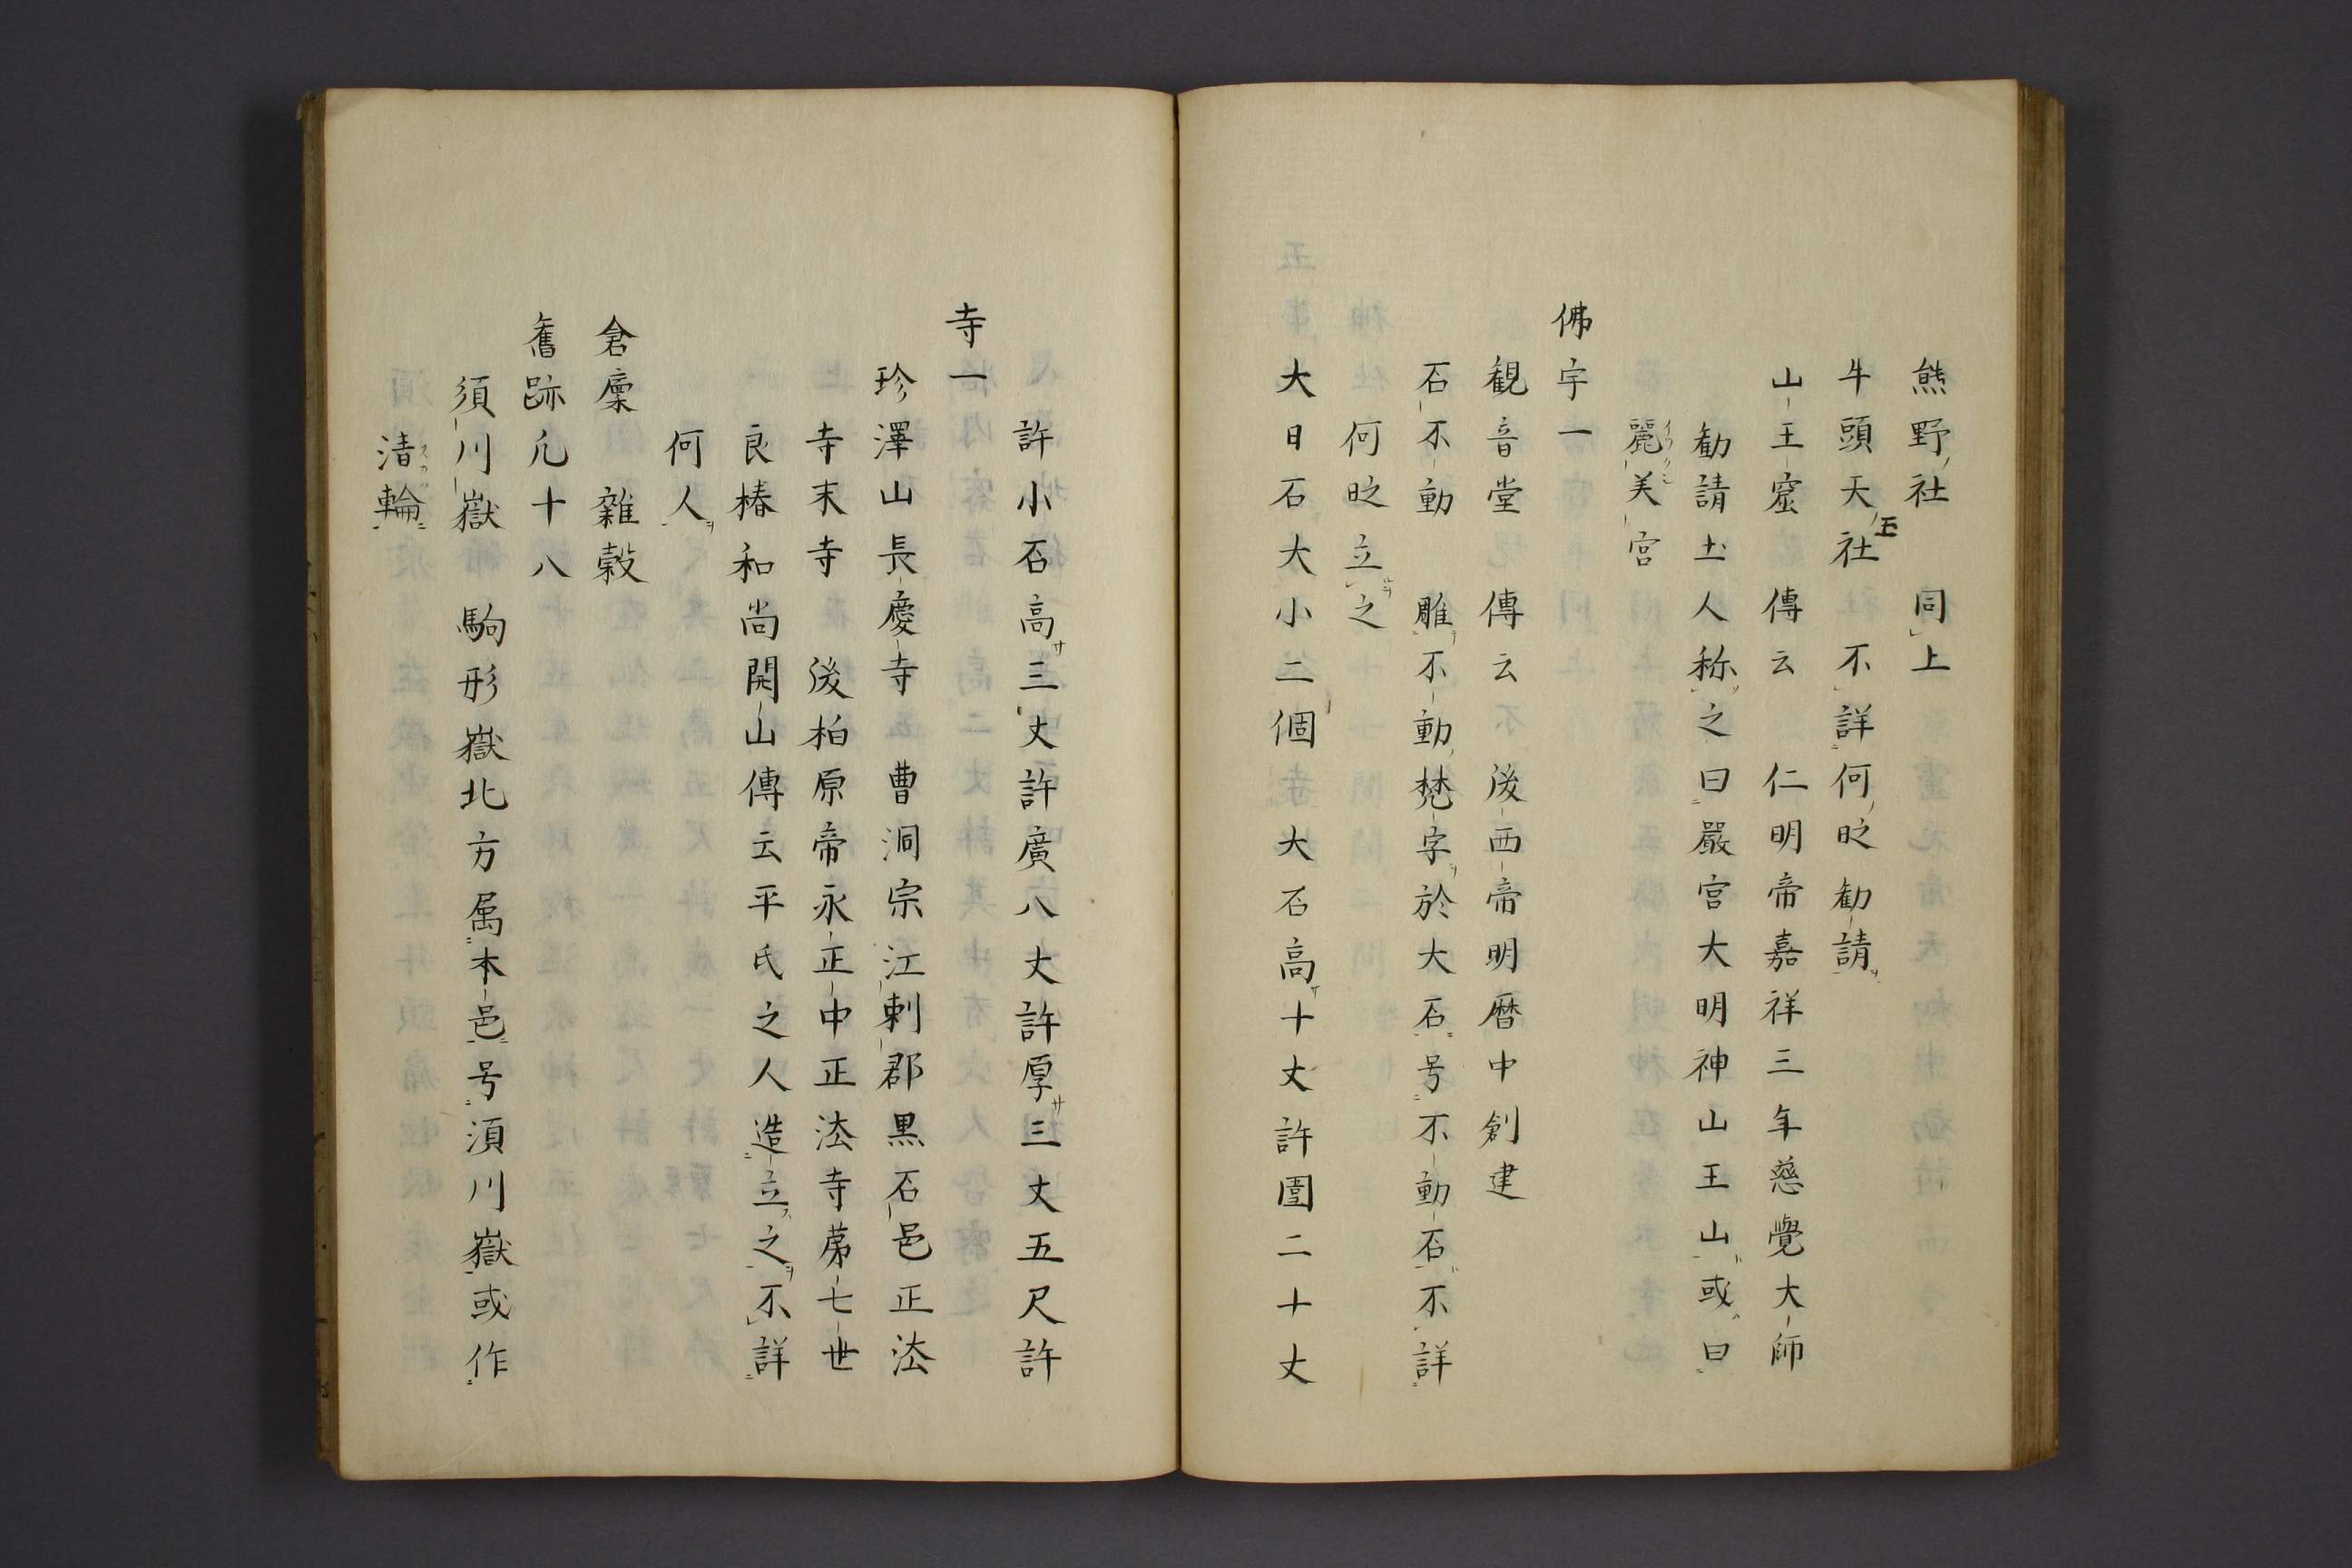 熊野社　同上
牛頭天王社　不詳何時勧請
山王窟　傳云　仁明帝嘉祥三年慈覺大師
勧請土人称之曰嚴宮大明神山王山或曰
麗美宮
佛宇一
観音堂　傳云　後西帝明暦中創建
石不動　雕不動梵字於大石号不動石不詳
何時立之
大日石大小二個　大石高サ十丈許圍二十丈
許小石高サ三丈許廣八丈許厚サ三丈五尺許
寺一
珍澤山長慶寺　曹洞宗江刺郡黒石邑正法
寺末寺　後柏原帝永正中正法寺苐七世
良椿和尚開山傳云平氏之人造立之不詳
何人
倉廩　雜穀
舊跡凢十八
須川嶽　駒形嶽北方属本邑号須川嶽或作
清輪